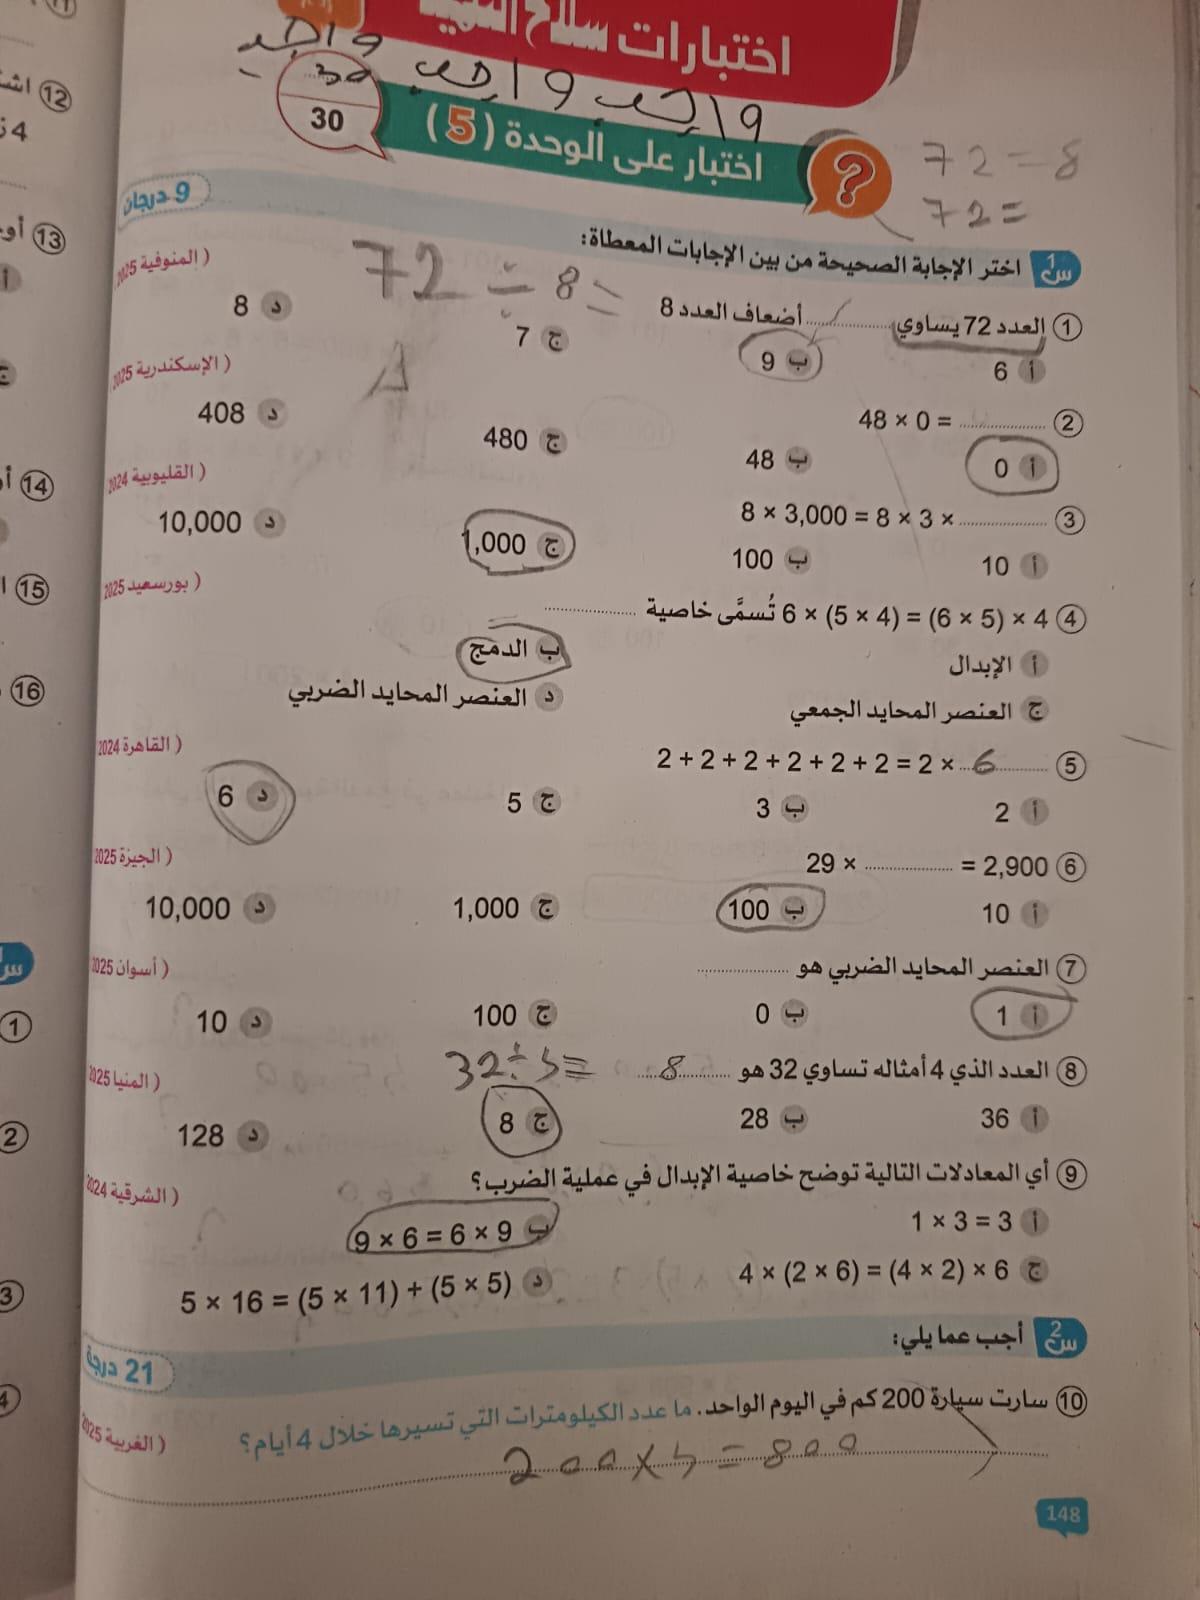 اختبارات سلاح التلميذ
واجب واجب واجب
30
30
اختبار على الوحدة (5)
72 = 8
72 =
9 درجات
س1 اختر الإجابة الصحيحة من بين الإجابات المعطاة:
72 ÷ 8 =
1 العدد 72 يساوي ........ أضعاف العدد 8 (المنوفية 2025
أ 6 ب 9 ج 7 د 8
2 48 × 0 = ........ (الإسكندرية 2025
أ 0 ب 48 ج 480 د 408
3 8 × 3,000 = 8 × 3 × ........ (القليوبية 2024
أ 10 ب 100 ج 1,000 د 10,000
4 6 × (5 × 4) = (6 × 5) × 4 تُسمَّى خاصية ........ (بورسعيد 2025
أ الإبدال ب الدمج
ج العنصر المحايد الجمعي د العنصر المحايد الضربي
5 2 + 2 + 2 + 2 + 2 + 2 = 2 × 6 (القاهرة 2024
أ 2 ب 3 ج 5 د 6
6 29 × ........ = 2,900 (الجيزة 2025
أ 10 ب 100 ج 1,000 د 10,000
7 العنصر المحايد الضربي هو ........ (أسوان 2025
أ 1 ب 0 ج 100 د 10
8 العدد الذي 4 أمثاله تساوي 32 هو 8 32 ÷ 4 = (المنيا 2025
أ 36 ب 28 ج 8 د 128
9 أي المعادلات التالية توضح خاصية الإبدال في عملية الضرب؟ (الشرقية 2024
أ 1 × 3 = 3 ب 9 × 6 = 6 × 9
ج 4 × (2 × 6) = (4 × 2) × 6 د 5 × 16 = (5 × 11) + (5 × 5)
س2 أجب عما يلي:
21 درجة
10 سارت سيارة 200 كم في اليوم الواحد. ما عدد الكيلومترات التي تسيرها خلال 4 أيام؟ (الغربية 2025
200 × 4 = 800
148
12
13
14
15
16
1
2
3
4